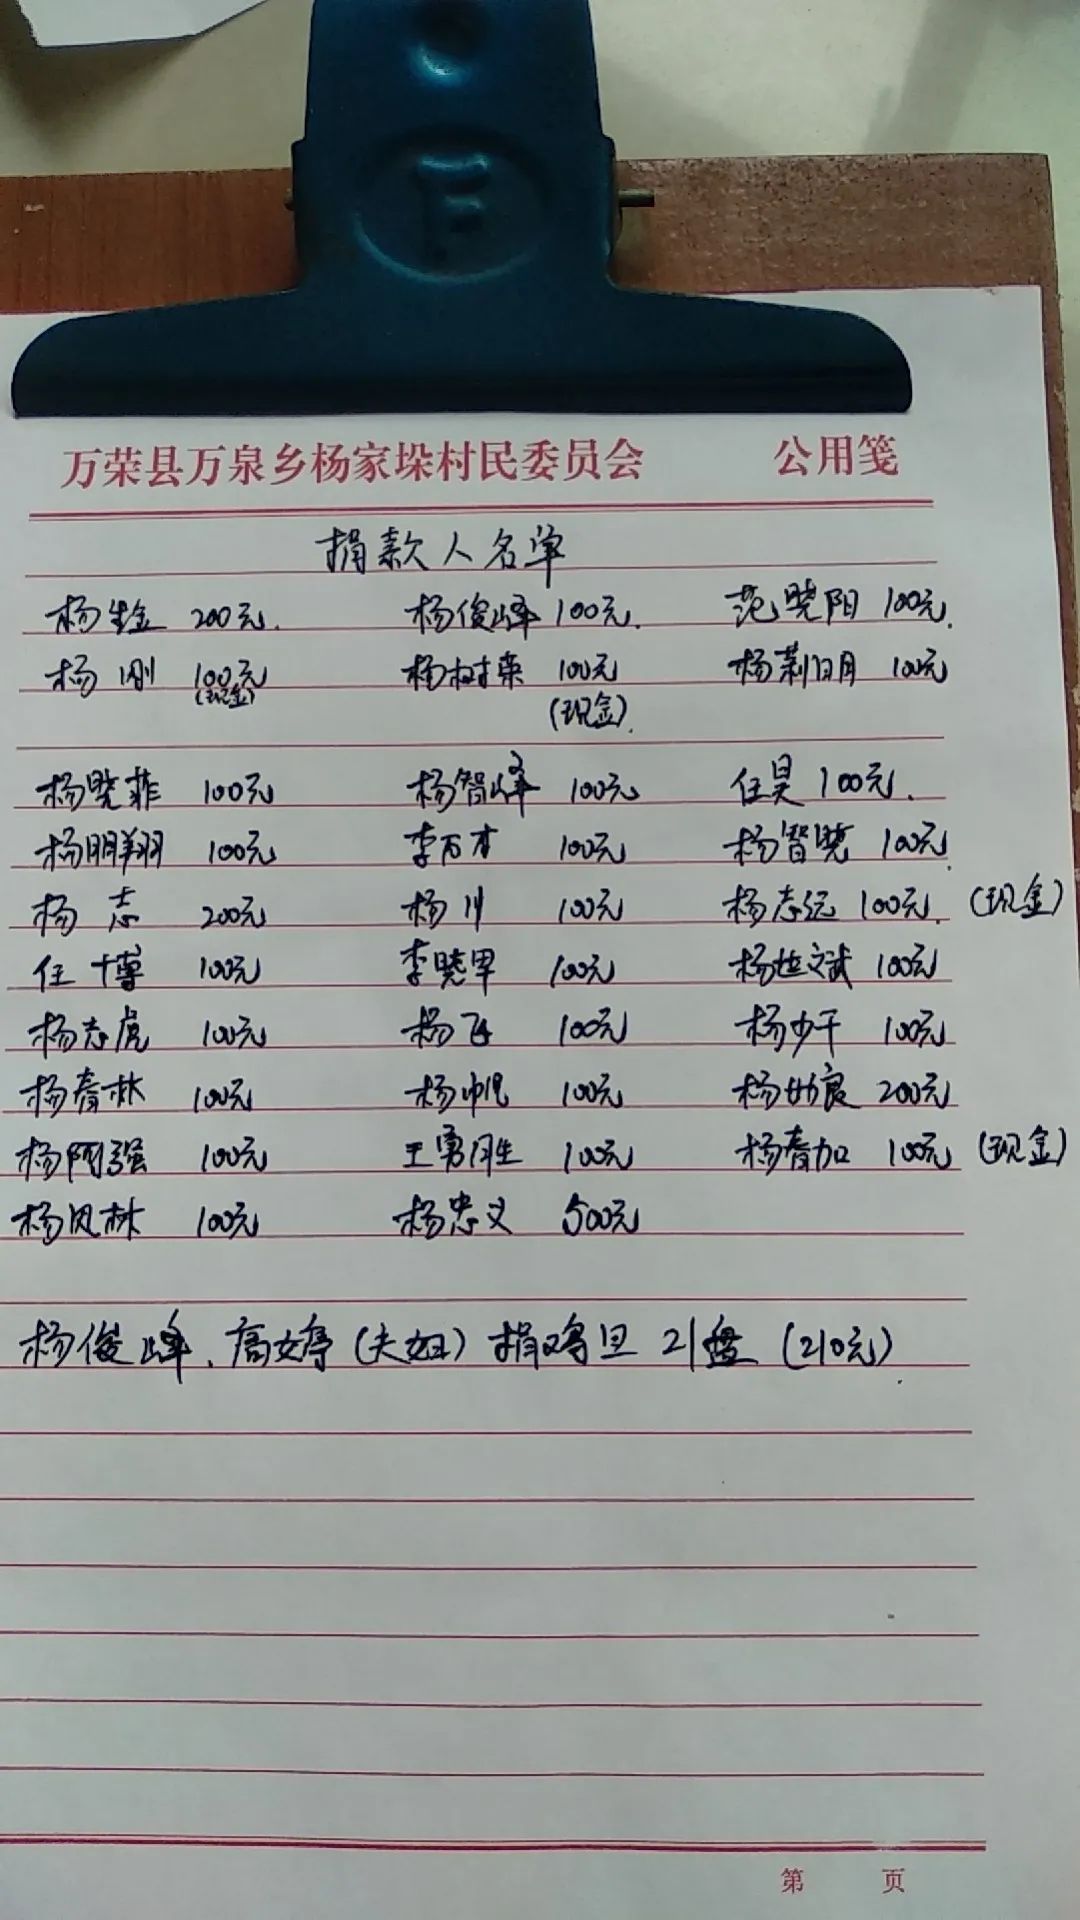 万荣县万泉乡杨家垛村民委员会 公用笺
捐款人名单
杨生金 200元. 杨俊峰 100元. 范晓阳 100元.
杨刚 100元 杨树荣 100元 杨荆明 100元
(现金) (现金).
杨晓菲 100元 杨智峰 100元 任昊 100元.
杨明翔 100元 李万才 100元 杨智晓 100元
杨志 200元 杨川 100元 杨志远 100元. (现金)
任博 100元 李晓甲 100元 杨文斌 100元
杨志虎 100元 杨飞 100元 杨少干 100元
杨春林 100元 杨帆 100元 杨良 200元
杨阿强 100元 王勇胜 100元 杨春加 100元 (现金)
杨凤林 100元 杨忠义 500元
杨俊峰、高婷(夫妇)捐鸡旦 21盘 (210元)
第 页